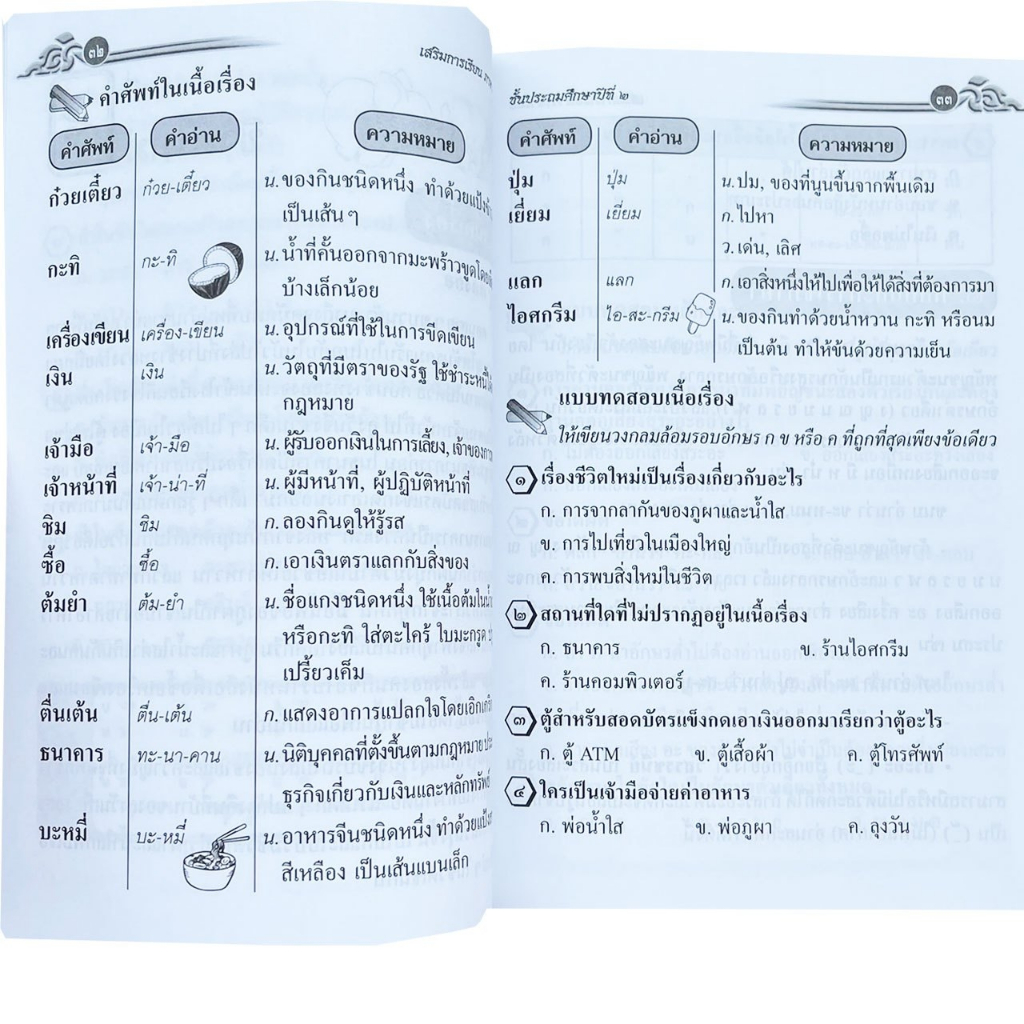 ๓๒
เสริมการเรียน
คำศัพท์ในเนื้อเรื่อง
คำศัพท์ คำอ่าน ความหมาย
ก๋วยเตี๋ยว ก๋วย-เตี๋ยว น. ของกินชนิดหนึ่ง ทำด้วยแป้ง
เป็นเส้น ๆ
กะทิ กะ-ทิ น. น้ำที่คั้นออกจากมะพร้าวขูด
บ้างเล็กน้อย
เครื่องเขียน เครื่อง-เขียน น. อุปกรณ์ที่ใช้ในการขีดเขียน
เงิน เงิน น. วัตถุที่มีตราของรัฐ ใช้ชำระหนี้
กฎหมาย
เจ้ามือ เจ้า-มือ น. ผู้รับออกเงินในการเลี้ยง, เจ้าของ
เจ้าหน้าที่ เจ้า-น่า-ที่ น. ผู้มีหน้าที่, ผู้ปฏิบัติหน้าที่
ชิม ชิม ก. ลองกินดูให้รู้รส
ซื้อ ซื้อ ก. เอาเงินตราแลกกับสิ่งของ
ต้มยำ ต้ม-ยำ น. ชื่อแกงชนิดหนึ่ง ใช้เนื้อต้มใน
หรือกะทิ ใส่ตะไคร้ ใบมะกรูด
เปรี้ยวเค็ม
ตื่นเต้น ตื่น-เต้น ก. แสดงอาการแปลกใจโดย
ธนาคาร ทะ-นา-คาน น. นิติบุคคลที่ตั้งขึ้นตามกฎหมาย
ธุรกิจเกี่ยวกับเงินและหลักทรัพย์
บะหมี่ บะ-หมี่ น. อาหารจีนชนิดหนึ่ง ทำด้วย
สีเหลือง เป็นเส้นแบนเล็ก
ชั้นประถมศึกษาปีที่ ๒ ๓๓
คำศัพท์ คำอ่าน ความหมาย
ปุ่ม ปุ่ม น. ปม, ของที่นูนขึ้นจากพื้นเดิม
เยี่ยม เยี่ยม ก. ไปหา
ว. เด่น, เลิศ
แลก แลก ก. เอาสิ่งหนึ่งให้ไปเพื่อให้ได้สิ่งที่ต้องการมา
ไอศกรีม ไอ-สะ-กรีม น. ของกินทำด้วยน้ำหวาน กะทิ หรือนม
เป็นต้น ทำให้ข้นด้วยความเย็น
แบบทดสอบเนื้อเรื่อง
ให้เขียนวงกลมล้อมรอบอักษร ก ข หรือ ค ที่ถูกที่สุดเพียงข้อเดียว
๑ เรื่องชีวิตใหม่เป็นเรื่องเกี่ยวกับอะไร
ก. การจากลากันของภูผาและน้ำใส
ข. การไปเที่ยวในเมืองใหญ่
ค. การพบสิ่งใหม่ในชีวิต
๒ สถานที่ใดที่ไม่ปรากฏอยู่ในเนื้อเรื่อง
ก. ธนาคาร ข. ร้านไอศกรีม
ค. ร้านคอมพิวเตอร์
๓ ตู้สำหรับสอดบัตรแข็งกดเอาเงินออกมาเรียกว่าตู้อะไร
ก. ตู้ ATM ข. ตู้เสื้อผ้า ค. ตู้โทรศัพท์
๔ ใครเป็นเจ้ามือจ่ายค่าอาหาร
ก. พ่อน้ำใส ข. พ่อภูผา ค. ลุงวัน